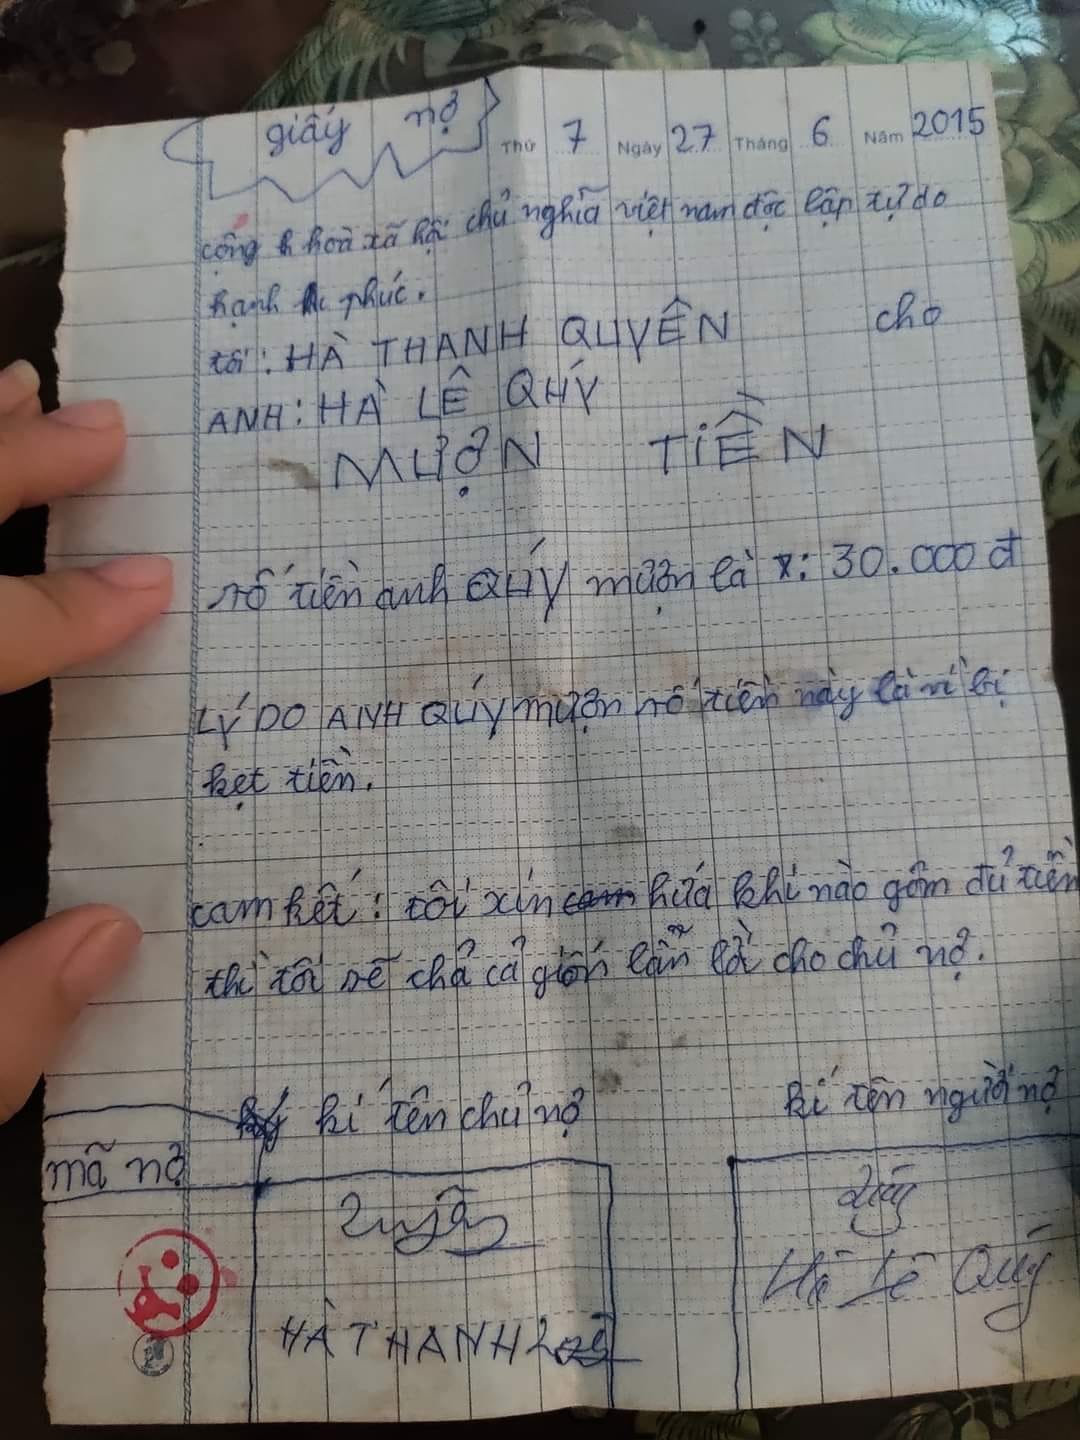 giấy nợ
Thứ 7 Ngày 27 Tháng 6 Năm 2015
cộng hoà xã hội chủ nghĩa việt nam độc lập tự do
hạnh phúc.
tôi: HÀ THANH QUYÊN cho
ANH: HÀ LÊ QUÝ
MƯỢN TIỀN
số tiền anh QUÝ mượn là : 30.000 đ
LÝ DO ANH QUÝ mượn số tiền này là vì bị
kẹt tiền.
cam kết: tôi xin hứa khi nào gôm đủ tiền
thì tôi sẽ chả cả gión lẫn lời cho chủ nợ.
kí tên chủ nợ
kí tên người nợ
mã nợ
Quyên
Quý
HÀ THANH
Hà Lê Quý